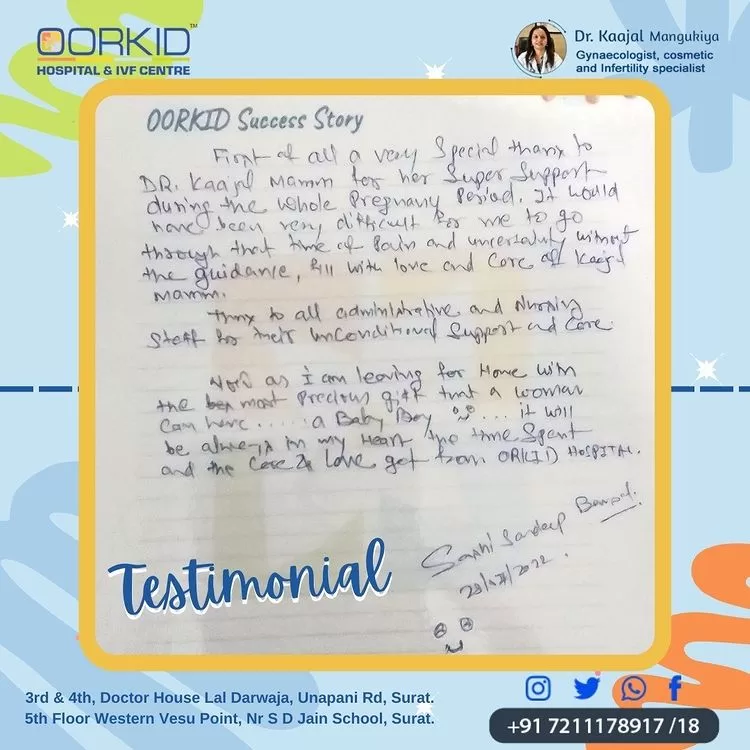 OORKID
HOSPITAL & IVF CENTRE
Dr. Kaajal Mangukiya
Gynaecologist, cosmetic
and Infertility specialist
OORKID Success Story
First of all a very Special thanx to
DR. Kaajal Mamm for her Super Support
during the whole Pregnancy Period. It would
have been very difficult for me to go
through that time of Pain and uncertainty without
the guidance, fill with love and Care of Kaajal
Mamm.
Thanx to all administrative and Nursing
Staff for their unconditional Support and Care.
Now as I am leaving for Home with
the most Precious gift that a woman
Can have ..... a Baby Boy .... it will
be always in my Heart the time Spent
and the Care & Love get from ORKID HOSPITAL.
Sandeep
2022
Testimonial
3rd & 4th, Doctor House Lal Darwaja, Unapani Rd, Surat.
5th Floor Western Vesu Point, Nr S D Jain School, Surat.
+91 7211178917 /18